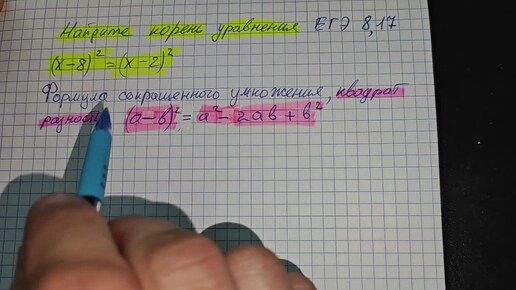 Найдите корень уравнения ЕГЭ 8,17
(x-8)² = (x-2)²
Формула сокращенного умножения, квадрат
разности (a-b)² = a² - 2ab + b²